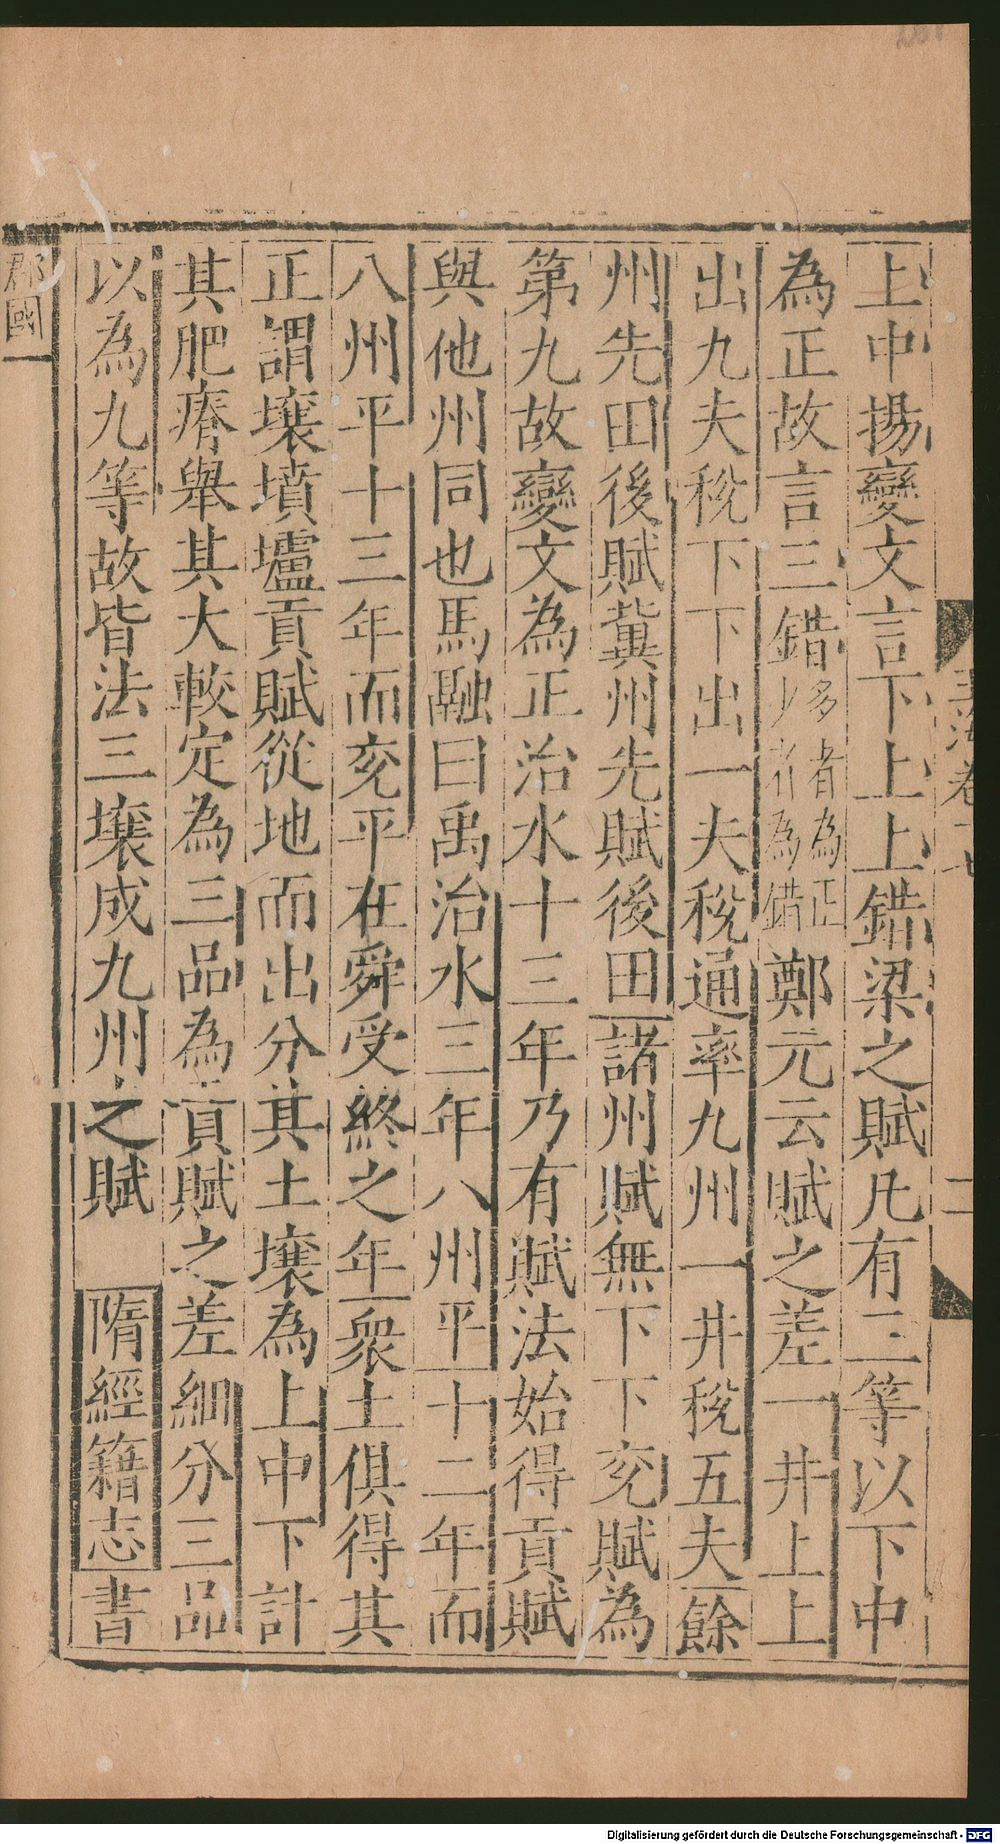 上中揚變文言下上上錯梁之賦凡有三等以下中
為正故言三錯多者為正少者為錯鄭元云賦之差一井上上
出九夫稅下下出一夫稅通率九州一井稅五夫餘
州先田後賦冀州先賦後田諸州賦無下下兖賦為
第九故變文為正治水十三年乃有賦法始得貢賦
與他州同也馬融曰禹治水三年八州平十二年而
八州平十三年而兖平在舜受終之年衆土俱得其
正謂壤墳壚貢賦從地而出分其土壤為上中下計
其肥瘠舉其大較定為三品為貢賦之差細分三品
以為九等故皆法三壤成九州之賦 隋經籍志書
郡國
Digitalisierung gefördert durch die Deutsche Forschungsgemeinschaft - DFG